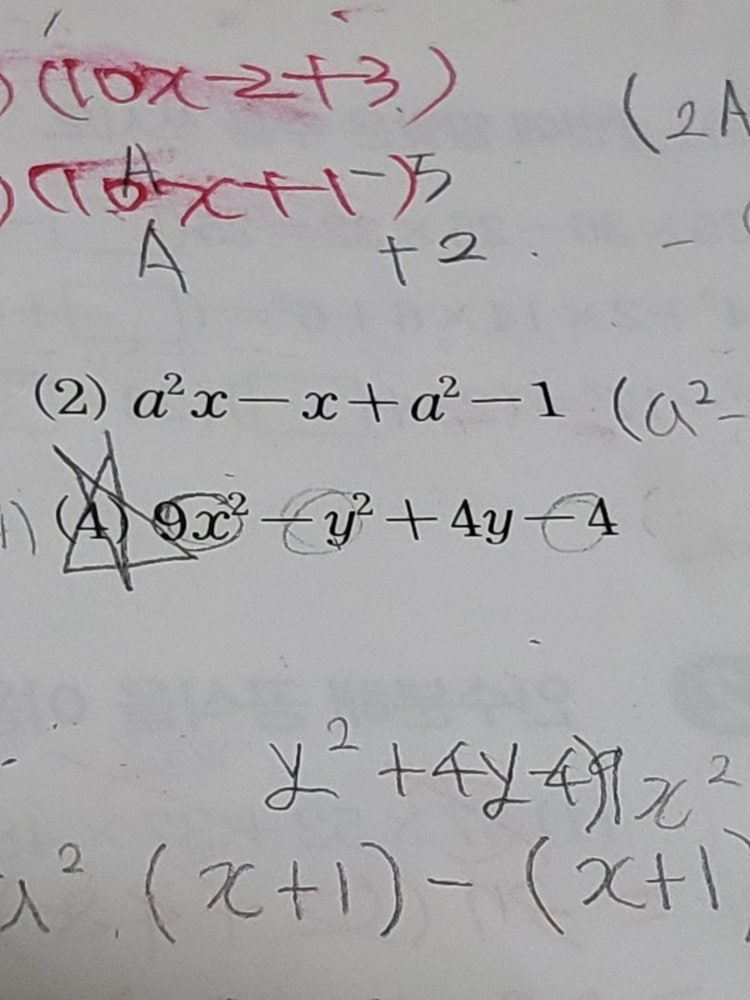 ) (10x-2+3)
(2A
) (10x+1-)5
A
A +2 -
(2) a²x-x+a²-1 (a²-
1) (4) 9x²-y²+4y-4
y²+4y-4)9x²
a² (x+1)-(x+1)